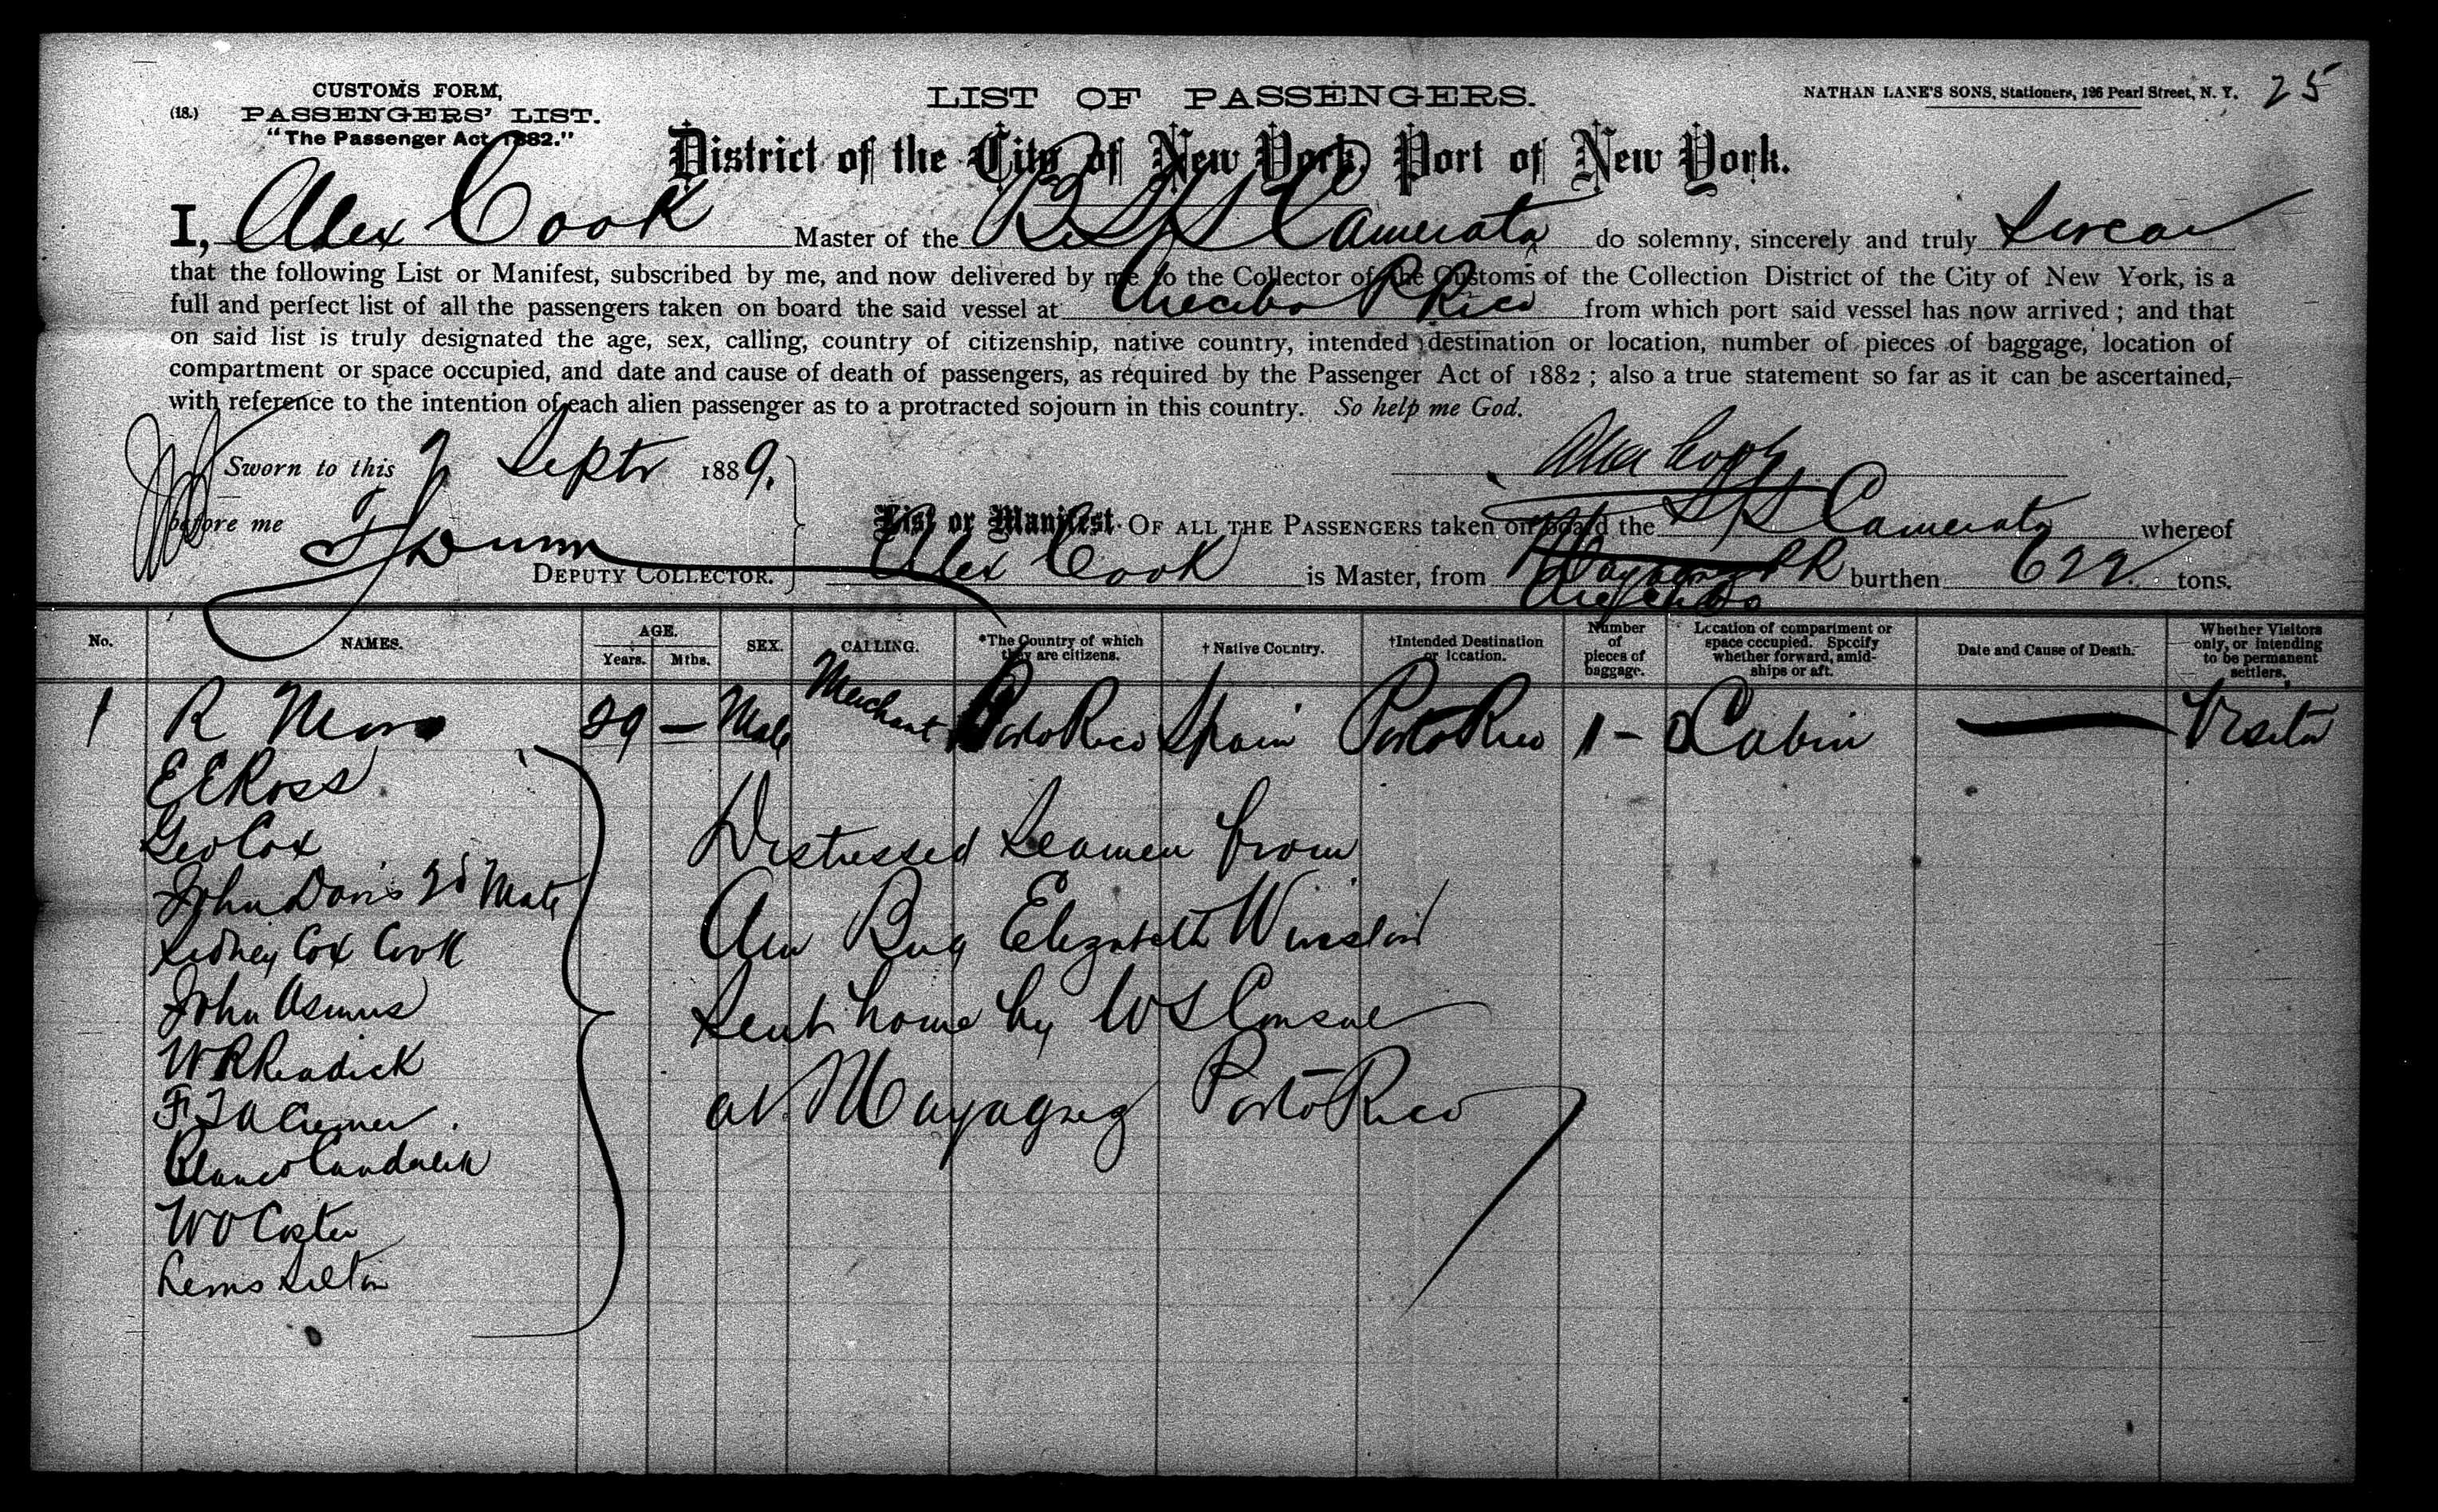 25
CUSTOMS FORM,
(18.) PASSENGERS' LIST.
"The Passenger Act, 1882."
LIST OF PASSENGERS.
NATHAN LANE'S SONS, Stationers, 196 Pearl Street, N. Y.
District of the City of New York, Port of New York.
I, Alex Cook Master of the Br SS Camerata do solemny, sincerely and truly Swear
that the following List or Manifest, subscribed by me, and now delivered by me to the Collector of the Customs of the Collection District of the City of New York, is a
full and perfect list of all the passengers taken on board the said vessel at Arecibo P Rico from which port said vessel has now arrived; and that
on said list is truly designated the age, sex, calling, country of citizenship, native country, intended destination or location, number of pieces of baggage, location of
compartment or space occupied, and date and cause of death of passengers, as required by the Passenger Act of 1882; also a true statement so far as it can be ascertained,
with reference to the intention of each alien passenger as to a protracted sojourn in this country. So help me God.
Sworn to this 7 Septr 1889. Alex Cook
before me
List or Manifest. OF ALL THE PASSENGERS taken on board the SS Camerata whereof
DEPUTY COLLECTOR. Alex Cook is Master, from Mayaguez PR burthen 622 tons.
Arecibo
No. NAMES. AGE. Years. Mths. SEX. CALLING. *The Country of which they are citizens. † Native Country. †Intended Destination or location. Number of pieces of baggage. Location of compartment or space occupied. Specify whether forward, amidships or aft. Date and Cause of Death. Whether Visitors only, or intending to be permanent settlers.
1 R 29 — Male Merchant Porto Rico Spain Porto Rico 1 - Cabin — Visitor
E E Ross
Geo Cox
John Davis 2d Mate
Sidney Cox Cook
John Asmus
W R
F
Blanco
W O Coster
Distressed Seamen from
Am Brig Elizabeth Winslow
Sent home by US Consul
at Mayaguez Porto Rico